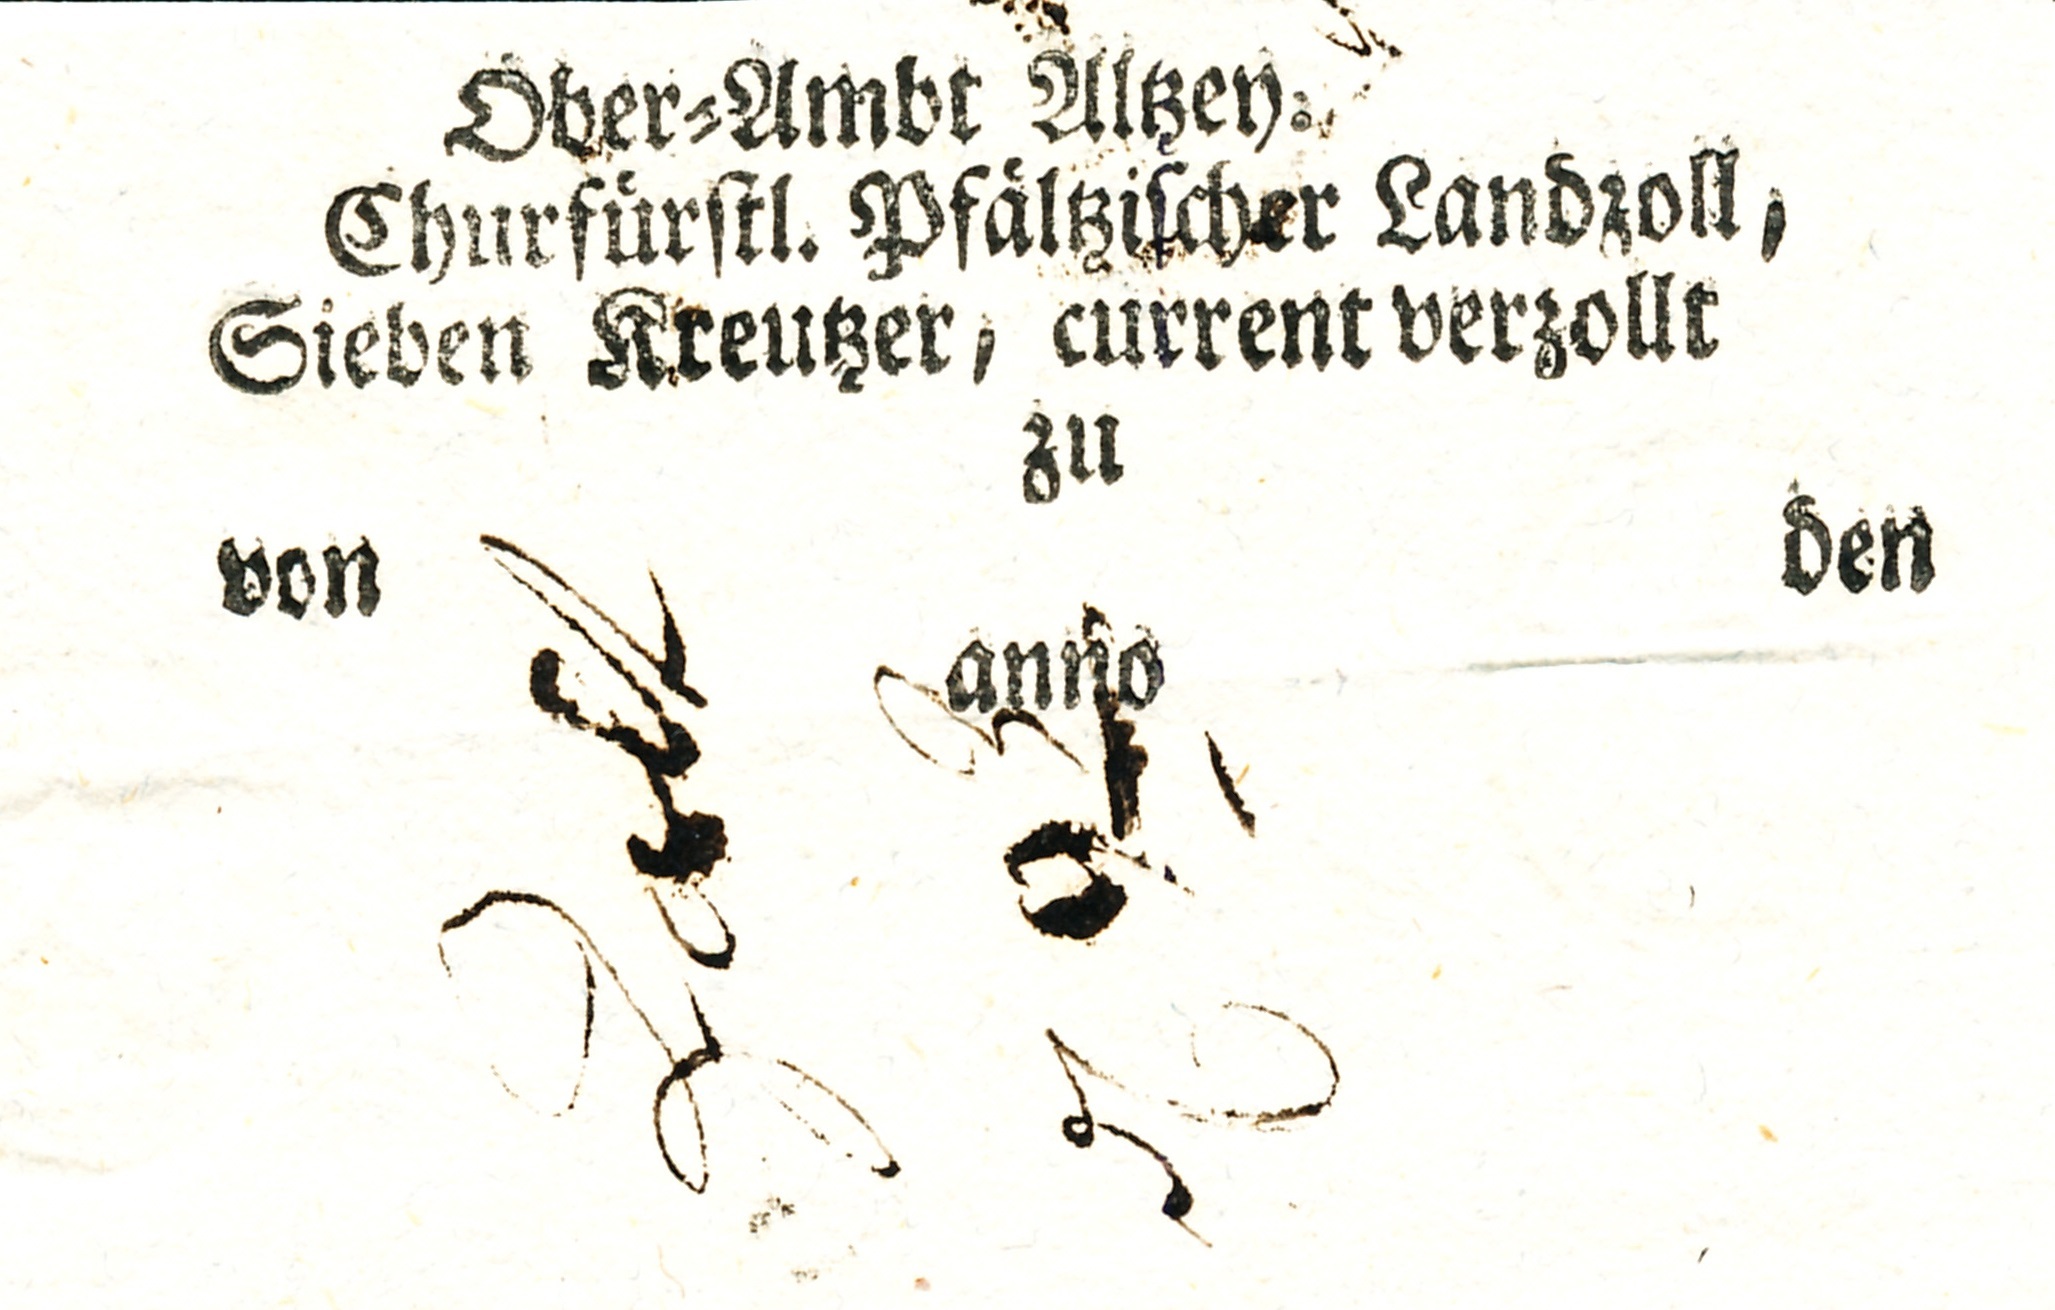 Ober-Ambt Altzey.
Churfürstl. Pfältzischer Landzoll,
Sieben Kreutzer, current verzollt
zu
von den
anno